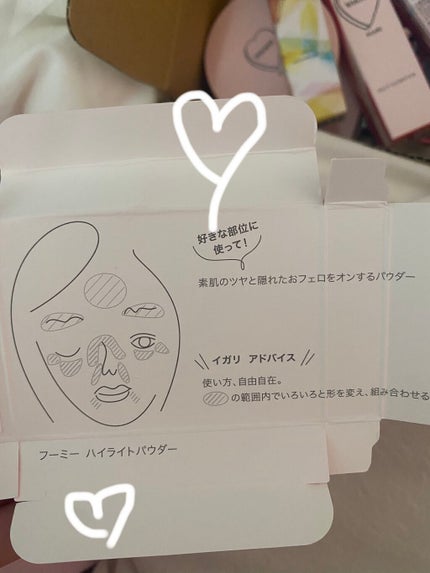 好きな部位に
使って!
素肌のツヤと隠れたおフェロをオンするパウダー
イガリ アドバイス
使い方、自由自在。
の範囲内でいろいろと形を変え、組み合わせる
フーミー ハイライトパウダー